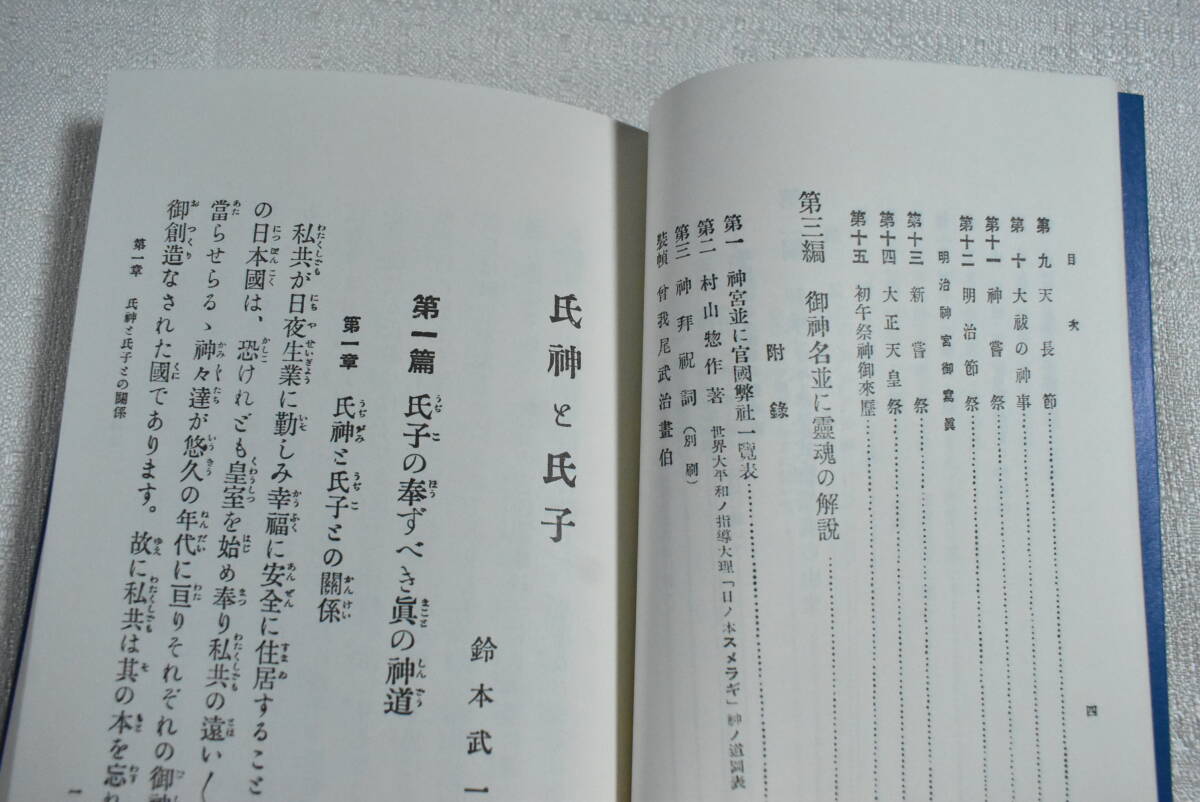 目次
第九 天長節
第十 大祓の神事
第十一 神嘗祭
第十二 明治節祭
明治神宮御寫眞
第十三 新嘗祭
第十四 大正天皇祭
第十五 初午祭神御來歷
第三編 御神名並に靈魂の解説
附錄
第一 神宮並に官國弊社一覽表
第二 村山惣作著 世界大平和ノ指導大理「日ノ本スメラギ」神ノ道圖表
第三 神拜祝詞(別刷)
裝幀 曾我尾武治畫伯
四
氏神と氏子
鈴本武一
第一篇 氏子の奉ずべき眞の神道
第一章 氏神と氏子との關係
私共が日夜生業に勤しみ幸福に安全に住居すること
の日本國は、恐けれども皇室を始め奉り私共の遠い
當らせらるゝ神々達が悠久の年代に亘りそれぞれの御神
御創造なされた國であります。故に私共は其の本を忘れ
第一章 氏神と氏子との關係
一